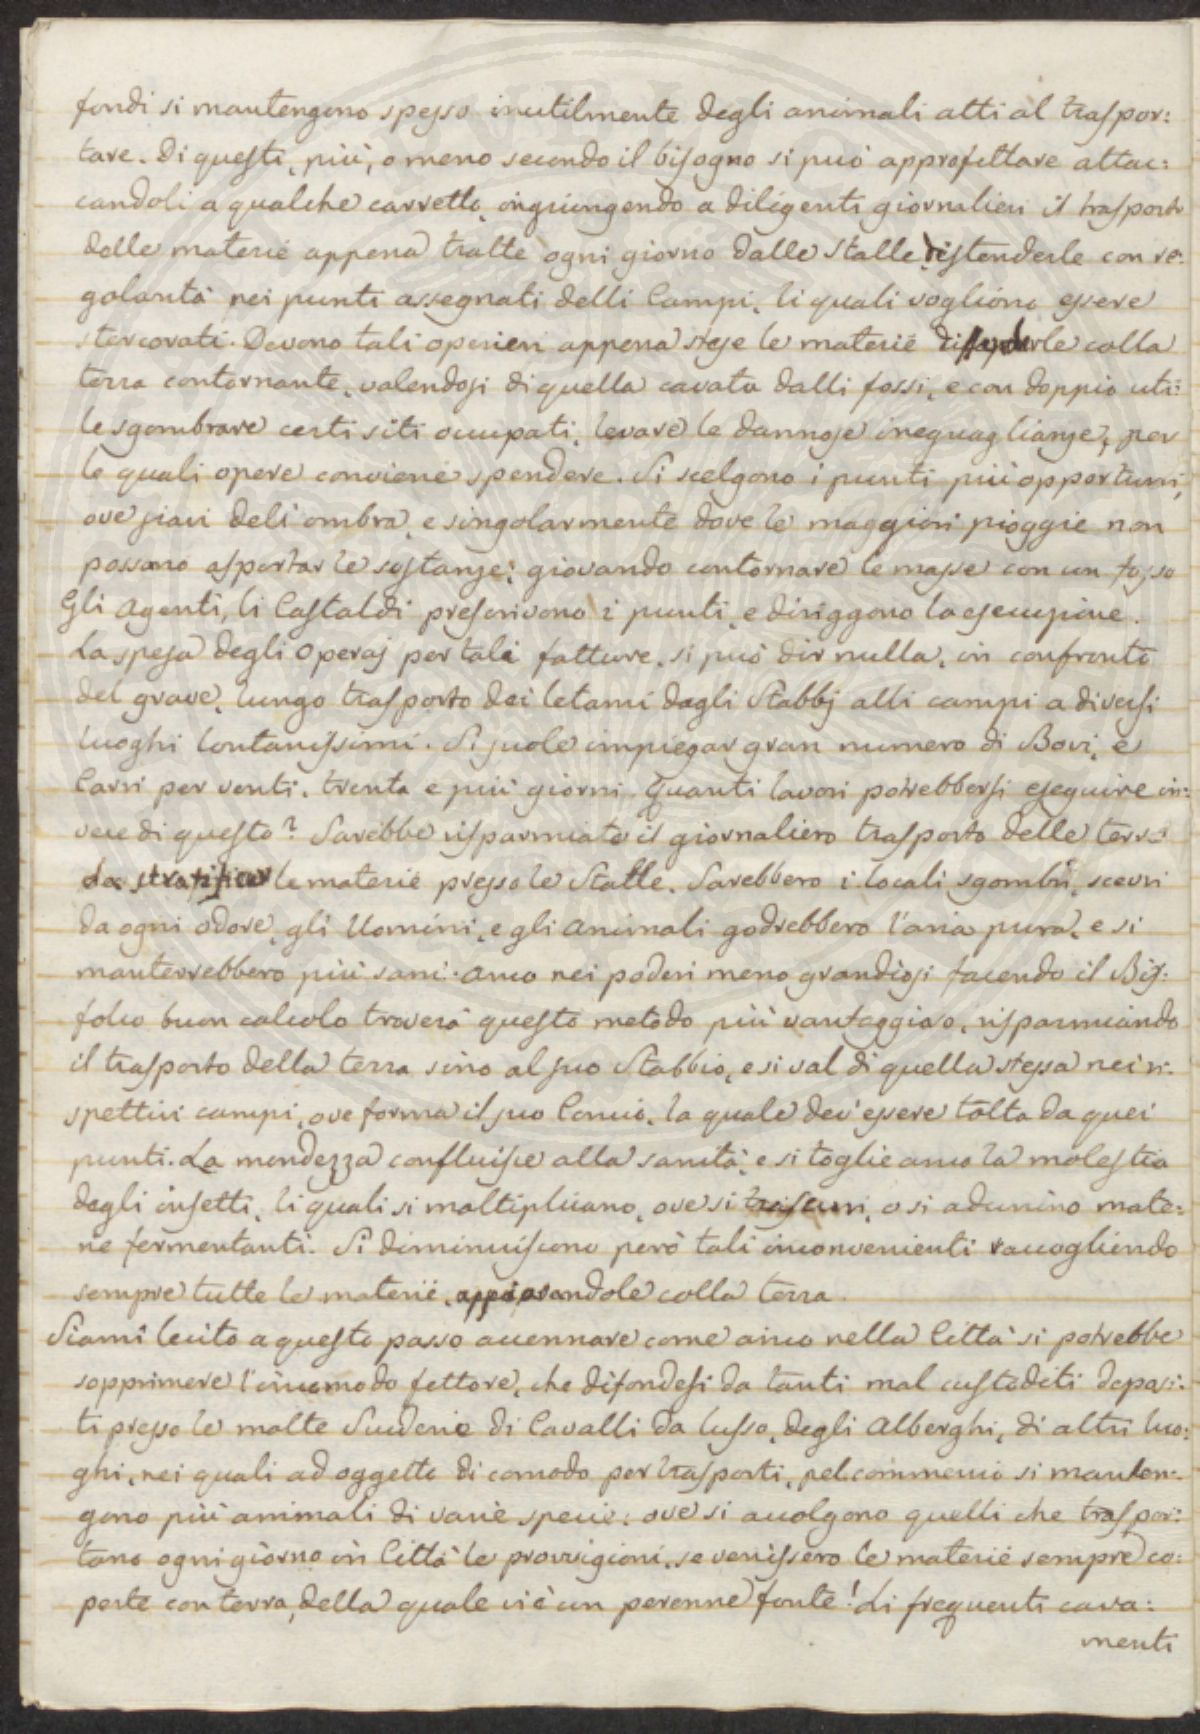 fondi si mantengono spesso inutilmente degli animali atti al traspor:
tare. Di questi, più, o meno secondo il bisogno si può approfittare attac:
candoli a qualche carretto, ingiungendo a diligenti giornalieri il trasporto
delle materie appena tratte ogni giorno dalle Stalle, distenderle con re:
golarità nei punti assegnati delli Campi, li quali vogliono essere
stercorati. Devono tali operieri appena stese le materie colla
terra contornante, valendosi di quella cavata dalli fossi, e con doppio uti:
le sgombrare certi siti occupati, levare le dannose ineguaglianze, per
le quali opere conviene spendere. Si scelgono i punti più opportuni,
ove siavi dell'ombra, e singolarmente dove le maggiori pioggie non
possano asportar le sostanze; giovando contornare le masse con un fosso
Gli Agenti, li Castaldi prescrivono i punti, e diriggono la esecuzione.
La spesa degli Operaj per tali fatture, si può dir nulla, in confronto
del grave, lungo trasporto dei letami dagli Stabbj alli campi a diversi
luoghi lontanissimi. Si suole impiegar gran numero di Bovi, e
Carri per venti, trenta e più giorni. Quanti lavori potrebbersi eseguire in:
vece di questo? Sarebbe risparmiato il giornaliero trasporto delle terre
da stratificar le materie presso le Stalle. Sarebbero i locali sgombri, scevri
da ogni odore, gli Uomini, e gli Animali godrebbero l'aria pura, e si
manterrebbero più sani. Anco nei poderi meno grandiosi facendo il Bif:
folco buon calcolo troverà questo metodo più vantaggioso, risparmiando
il trasporto della terra sino al suo Stabbio, e si val di quella stessa nei ri:
spettivi campi, ove forma il suo Concio, la quale dev'essere tolta da quei
punti. La mondezza confluisce alla sanità, e si toglie anco la molestia
degli insetti, li quali si moltiplicano, ove si trascuri, o si adunino mate:
rie fermentanti. Si diminuiscono però tali inconvenienti raccogliendo
sempre tutte le materie, colla terra.
Siami lecito a questo passo accennare come anco nella Città si potrebbe
sopprimere l'incomodo fettore, che difondesi da tanti mal custoditi deposi:
ti presso le molte Scuderie di Cavalli da lusso, degli Alberghi, di altri luo:
ghi, nei quali ad oggetto di comodo per trasporti, pel commercio si manten:
gono più animali di varie specie: ove si accolgono quelli che traspor:
tano ogni giorno in Città le provvigioni, se venissero le materie sempre co:
perte con terra, della quale vi è un perenne fonte! Li frequenti cava:
menti